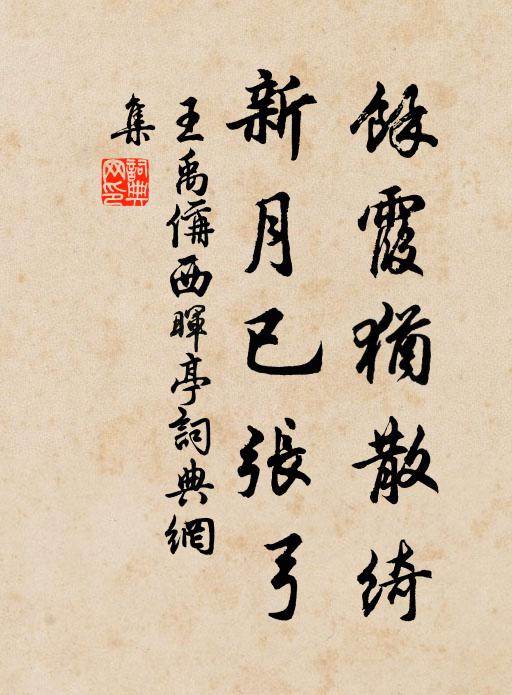 餘霞猶散綺
新月已張弓
王禹偁西暉亭詞典網
集
詞典
网印